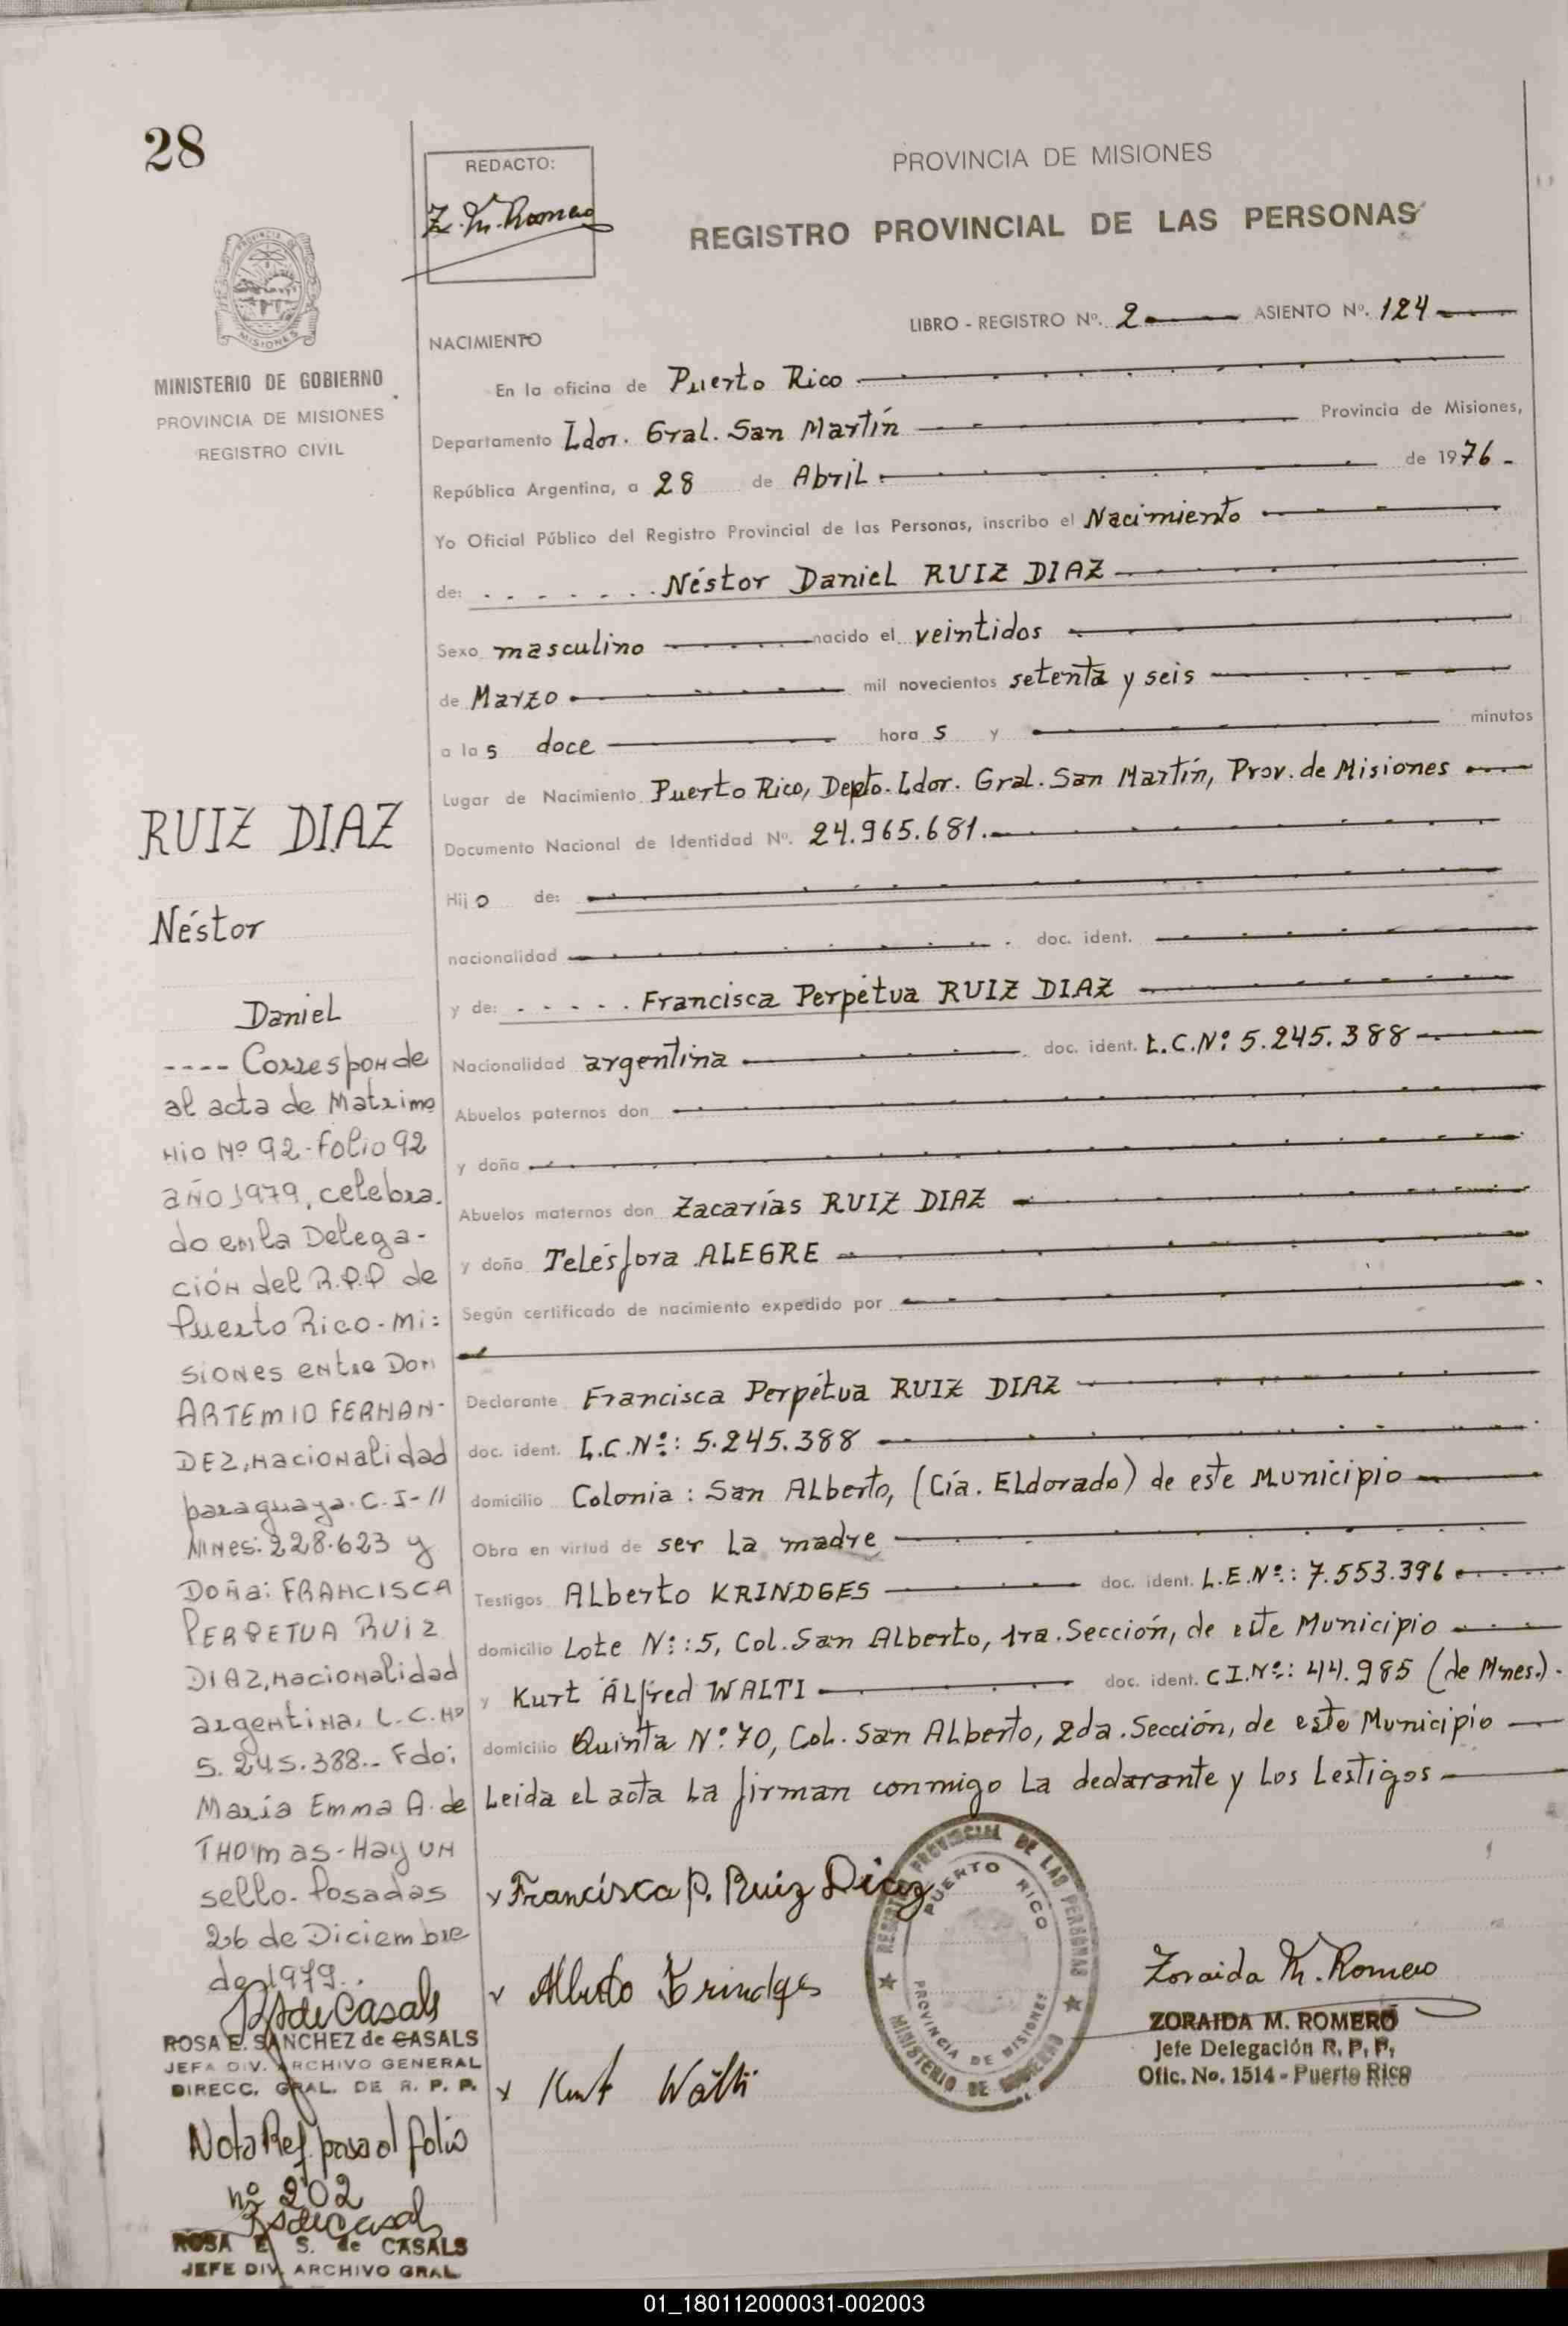 28
REDACTO:
Z. M. Romero
PROVINCIA DE MISIONES
REGISTRO PROVINCIAL DE LAS PERSONAS
LIBRO - REGISTRO Nº. 2 ASIENTO Nº. 124
PROVINCIA DE
MISIONES
MINISTERIO DE GOBIERNO
PROVINCIA DE MISIONES
REGISTRO CIVIL
NACIMIENTO
En la oficina de Puerto Rico
Departamento Ldor. Gral. San Martín Provincia de Misiones,
República Argentina, a 28 de Abril de 1976-
Yo Oficial Público del Registro Provincial de las Personas, inscribo el Nacimiento
de: Néstor Daniel RUIZ DIAZ
Sexo masculino nacido el veintidos
de Marzo mil novecientos setenta y seis
a las doce horas y minutos
Lugar de Nacimiento Puerto Rico, Depto. Ldor. Gral. San Martín, Prov. de Misiones
Documento Nacional de Identidad Nº. 24.965.681.
Hijo de:
nacionalidad doc. ident.
y de: Francisca Perpétua RUIZ DIAZ
Nacionalidad argentina doc. ident. L.C.Nº: 5.245.388
Abuelos paternos don
y doña
Abuelos maternos don Zacarías RUIZ DIAZ
y doña Telésfora ALEGRE
Según certificado de nacimiento expedido por
Declarante Francisca Perpétua RUIZ DIAZ
doc. ident. L.C.Nº: 5.245.388
domicilio Colonia: San Alberto, (Cía. Eldorado) de este Municipio
Obra en virtud de ser la madre
Testigos Alberto KRINDGES doc. ident. L.E.Nº.: 7.553.396
domicilio Lote Nº: 5, Col. San Alberto, 1ra. Sección, de este Municipio
y Kurt Alfred WALTI doc. ident. C.I.Nº: 44.985 (de Mnes.).
domicilio Quinta Nº: 70, Col. San Alberto, 2da. Sección, de este Municipio
Leida el acta la firman conmigo la declarante y los testigos
x Francisca P. Ruiz Diaz
x Alberto Krindges
x Kurt Wälti
REGISTRO PROVINCIAL DE LAS PERSONAS
PUERTO RICO
PROVINCIA DE MISIONES
MINISTERIO DE GOBIERNO
Zoraida M. Romero
ZORAIDA M. ROMERO
Jefe Delegación R. P. P.
Ofic. No. 1514 - Puerto Rico
RUIZ DIAZ
Néstor
Daniel
---- Corresponde
al acta de Matrimo
nio Nº 92 - Folio 92
año 1979, celebra.
do en la Delega-
ción del R.P.P de
Puerto Rico - Mi:
siones entre Don
ARTEMIO FERNAN-
DEZ, nacionalidad
paraguaya. C.I-//
Mnes: 228.623 y
Doña: FRANCISCA
PERPETUA RUIZ
DIAZ, nacionalidad
argentina, L.C. Nº
5.245.388.- Fdo:
María Emma A. de
THOmas - Hay un
sello - Posadas
26 de Diciembre
de 1979.
RSdeCasals
ROSA E. SANCHEZ de CASALS
JEFA DIV. ARCHIVO GENERAL
DIRECC. GRAL. DE R. P. P.
Nota Ref. pasa al folio
nº 202
RSdeCasals
ROSA E. S. de CASALS
JEFE DIV. ARCHIVO GRAL.
01_180112000031-002003